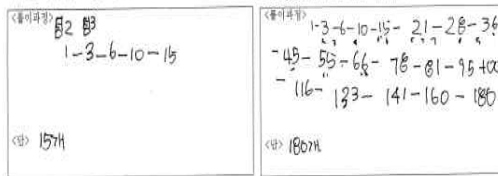 <풀이과정>
2 3
1-3-6-10-15
<답> 15개
<풀이과정>
1-3-6-10-15-21-28-36
-45-55-66-78-81-95-100
-116-133-141-160-180
<답> 180개